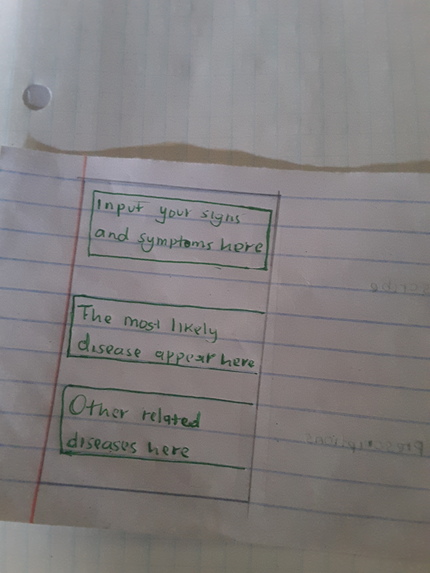 Input your signs
and symptoms here
The most likely
disease appear here
Other related
diseases here